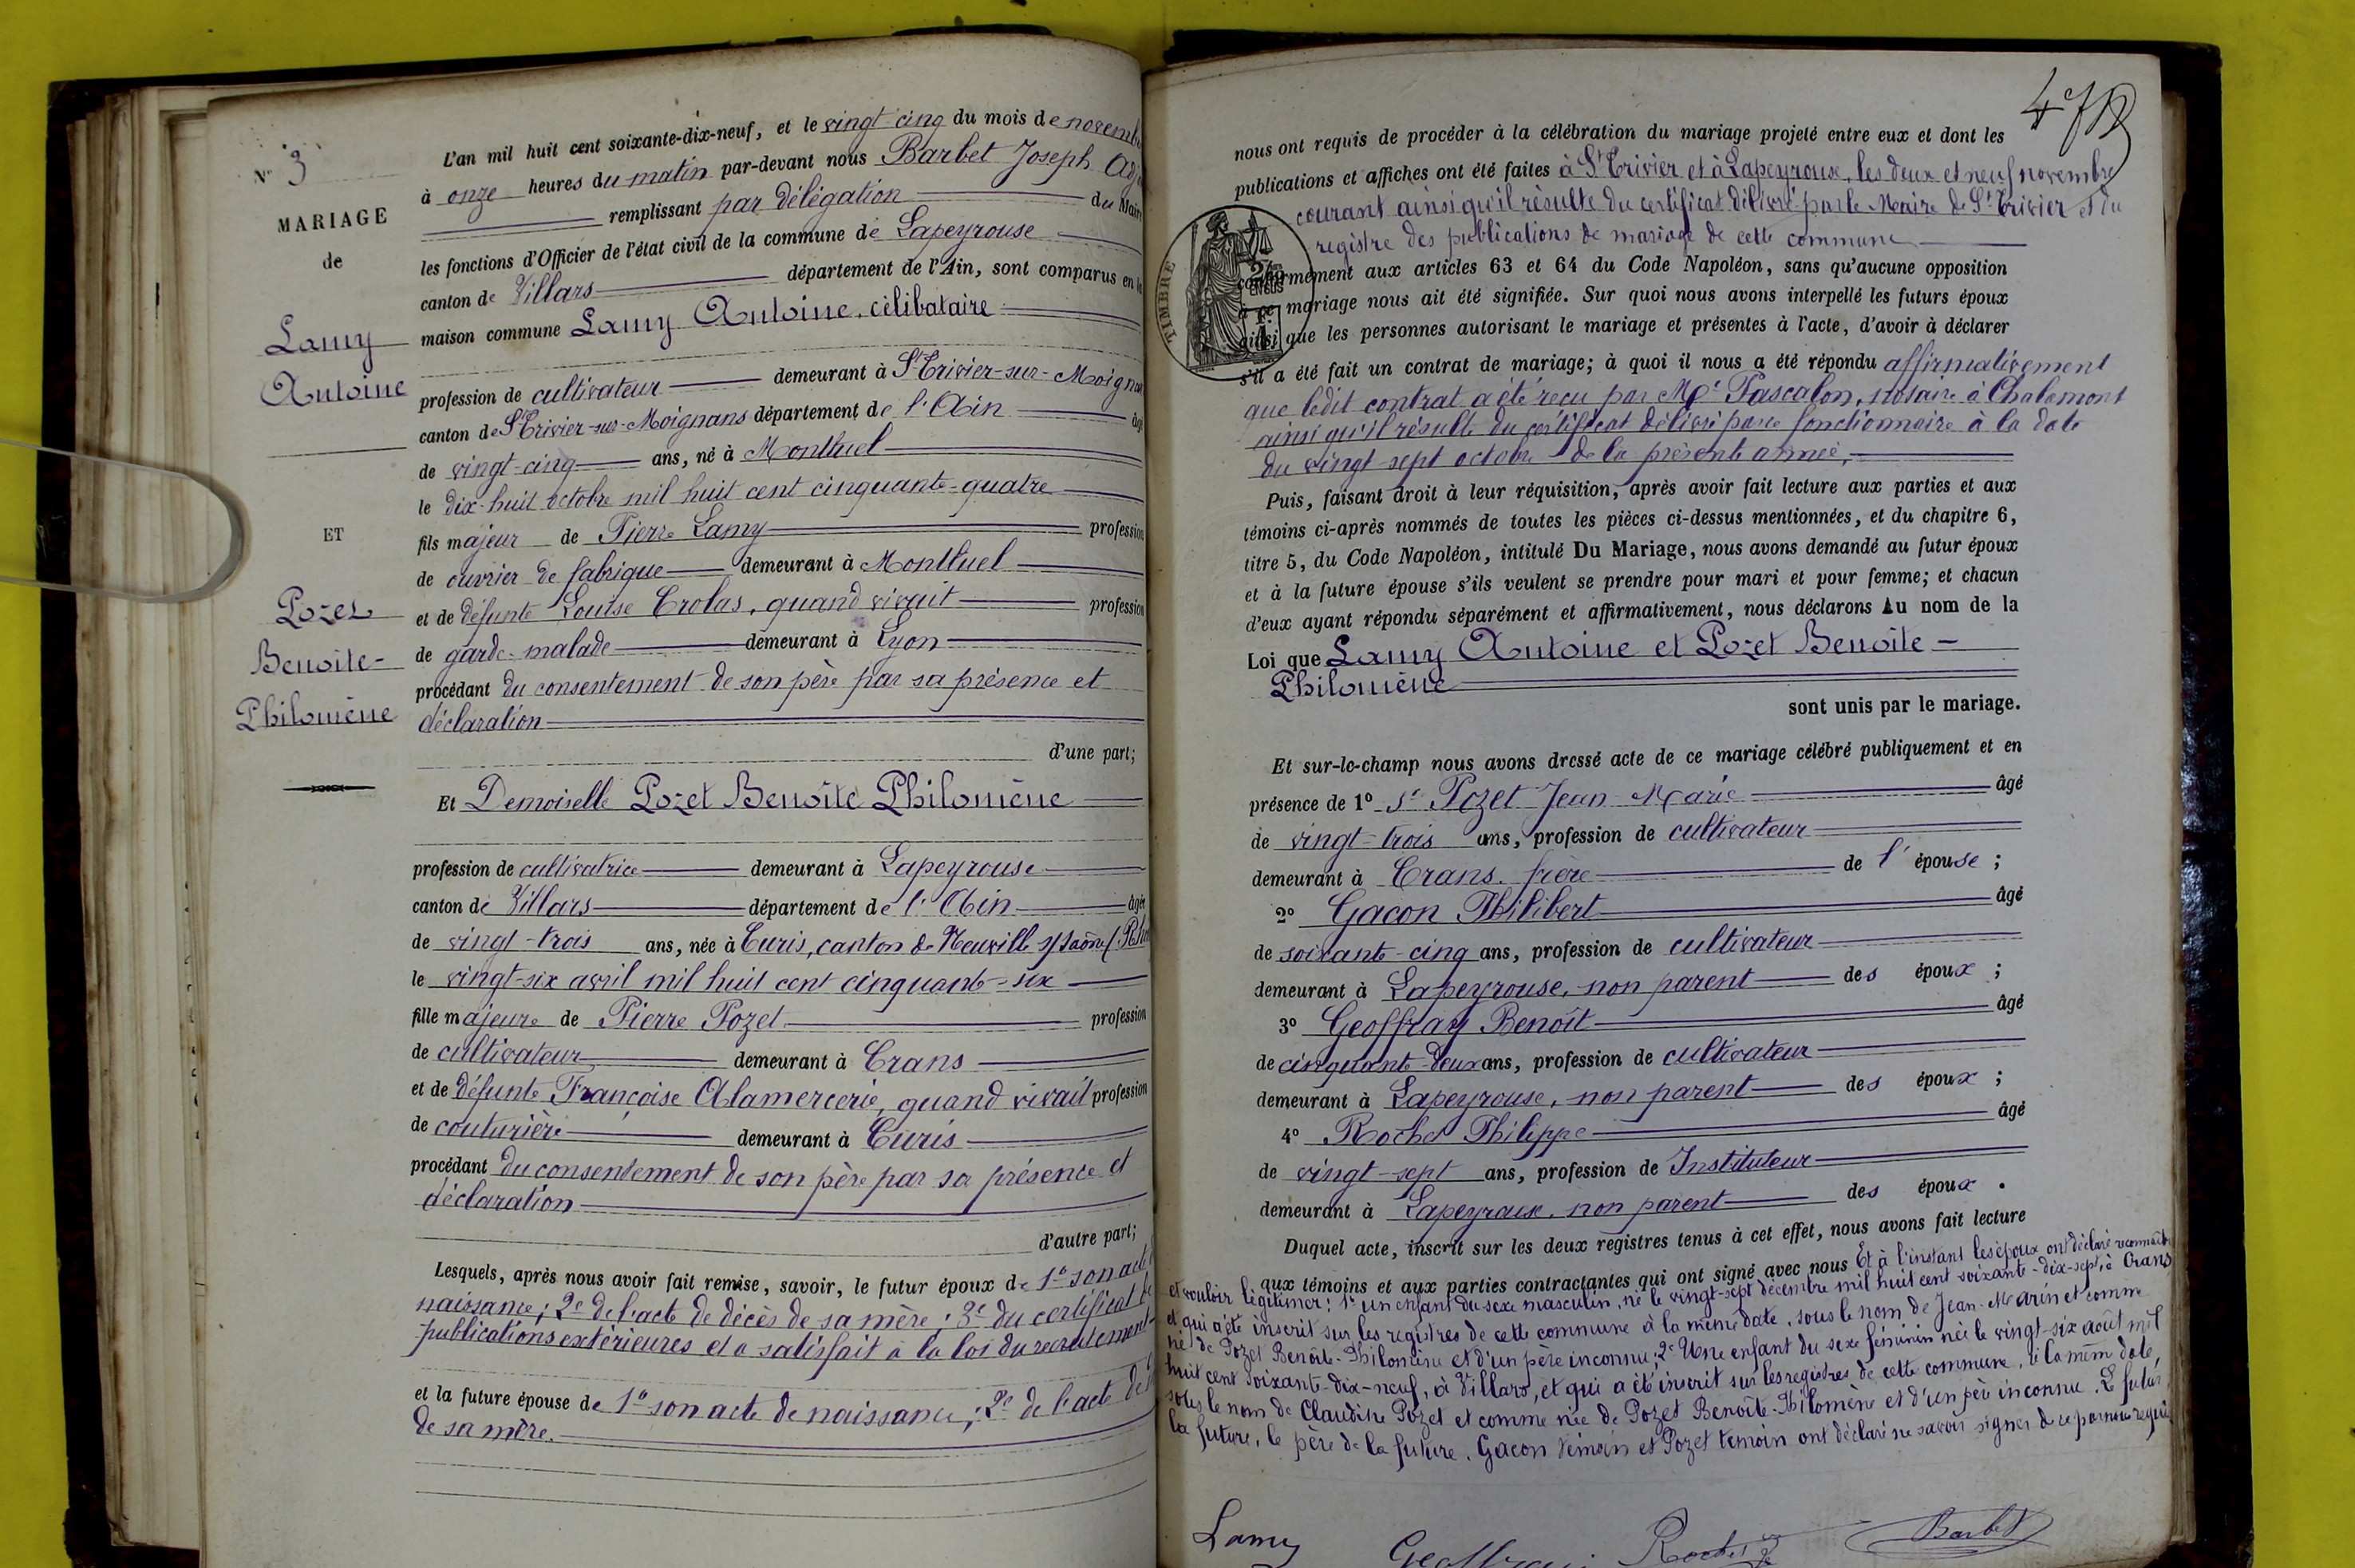 N° 3
MARIAGE
de
Lamy
Antoine
ET
Pozet
Benoîte-
Philomène
L'an mil huit cent soixante-dix-neuf, et le vingt cinq du mois de novemb
à onze heures du matin par-devant nous Barbet Joseph Adj
remplissant par délégation du Maire
les fonctions d'Officier de l'état civil de la commune de Lapeyrouse
canton de Villars département de l'Ain, sont comparus en la
maison commune Lamy Antoine, célibataire
profession de cultivateur demeurant à St Trivier-sur-Moigna
canton de St Trivier-sur-Moignans département de l'Ain âgé
de vingt-cinq ans, né à Montluel
le dix-huit octobre mil huit cent cinquante-quatre
fils majeur de Pierre Lamy profession
de ouvrier de fabrique demeurant à Montluel
et de défunte Louise Crolas, quand vivait profession
de garde-malade demeurant à Lyon
procédant du consentement de son père par sa présence et
déclaration
d'une part;
Et Demoiselle Pozet Benoîte Philomène
profession de cultivatrice demeurant à Lapeyrouse
canton de Villars département de l'Ain âgée
de vingt-trois ans, née à Curis, canton de Neuville s/Saône (Rhô
le vingt-six avril mil huit cent cinquante-six
fille majeure de Pierre Pozet profession
de cultivateur demeurant à Crans
et de défunte Françoise Alamercerie, quand vivait profession
de couturière demeurant à Curis
procédant du consentement de son père par sa présence et
déclaration
d'autre part;
Lesquels, après nous avoir fait remise, savoir, le futur époux de 1° son acte
naissance; 2° de l'acte de décès de sa mère; 3° du certificat de
publications extérieures et a satisfait à la loi du recrutement
et la future épouse de 1° son acte de naissance; 2° de l'acte de
de sa mère.
nous ont requis de procéder à la célébration du mariage projeté entre eux et dont les
publications et affiches ont été faites à St Trivier et à Lapeyrouse, les deux et neuf novembre
courant ainsi qu'il résulte du certificat délivré par le Maire de St Trivier et du
registre des publications de mariage de cette commune
conformément aux articles 63 et 64 du Code Napoléon, sans qu'aucune opposition
à ce mariage nous ait été signifiée. Sur quoi nous avons interpellé les futurs époux
ainsi que les personnes autorisant le mariage et présentes à l'acte, d'avoir à déclarer
TIMBRE
s'il a été fait un contrat de mariage; à quoi il nous a été répondu affirmativement
que ledit contrat a été reçu par Me Pascalon, notaire à Chalamont
ainsi qu'il résulte du certificat délivré par ce fonctionnaire à la date
du vingt-sept octobre de la présente année,
Puis, faisant droit à leur réquisition, après avoir fait lecture aux parties et aux
témoins ci-après nommés de toutes les pièces ci-dessus mentionnées, et du chapitre 6,
titre 5, du Code Napoléon, intitulé Du Mariage, nous avons demandé au futur époux
et à la future épouse s'ils veulent se prendre pour mari et pour femme; et chacun
d'eux ayant répondu séparément et affirmativement, nous déclarons Au nom de la
Loi que Lamy Antoine et Pozet Benoîte-
Philomène
sont unis par le mariage.
Et sur-le-champ nous avons dressé acte de ce mariage célébré publiquement et en
présence de 1° sr Pozet Jean Marie âgé
de vingt-trois ans, profession de cultivateur
demeurant à Crans. frère de l'épouse;
2° Gacon Philibert âgé
de soixante-cinq ans, profession de cultivateur
demeurant à Lapeyrouse, non parent des époux;
3° Geoffray Benoît âgé
de cinquante-deux ans, profession de cultivateur
demeurant à Lapeyrouse, non parent des époux;
4° Roche Philippe âgé
de vingt-sept ans, profession de Instituteur
demeurant à Lapeyrouse, non parent des époux.
Duquel acte, inscrit sur les deux registres tenus à cet effet, nous avons fait lecture
aux témoins et aux parties contractantes qui ont signé avec nous Et à l'instant les époux ont déclaré reconnaître
et vouloir légitimer: 1° un enfant du sexe masculin, né le vingt-sept décembre mil huit cent soixante-dix-sept, à Crans
et qui a été inscrit sur les registres de cette commune à la même date, sous le nom de Jean-Marin et comme
né de Pozet Benoîte-Philomène et d'un père inconnu; 2° Une enfant du sexe féminin née le vingt-six août mil
huit cent soixante-dix-neuf, à Villars, et qui a été inscrit sur les registres de cette commune, à la même date,
sous le nom de Claudine Pozet et comme née de Pozet Benoîte-Philomène et d'un père inconnu. Le futur
la future, le père de la future, Gacon témoin et Pozet témoin ont déclaré ne savoir signer de ce par nous requis
Lamy Geoffray Roche Barbet